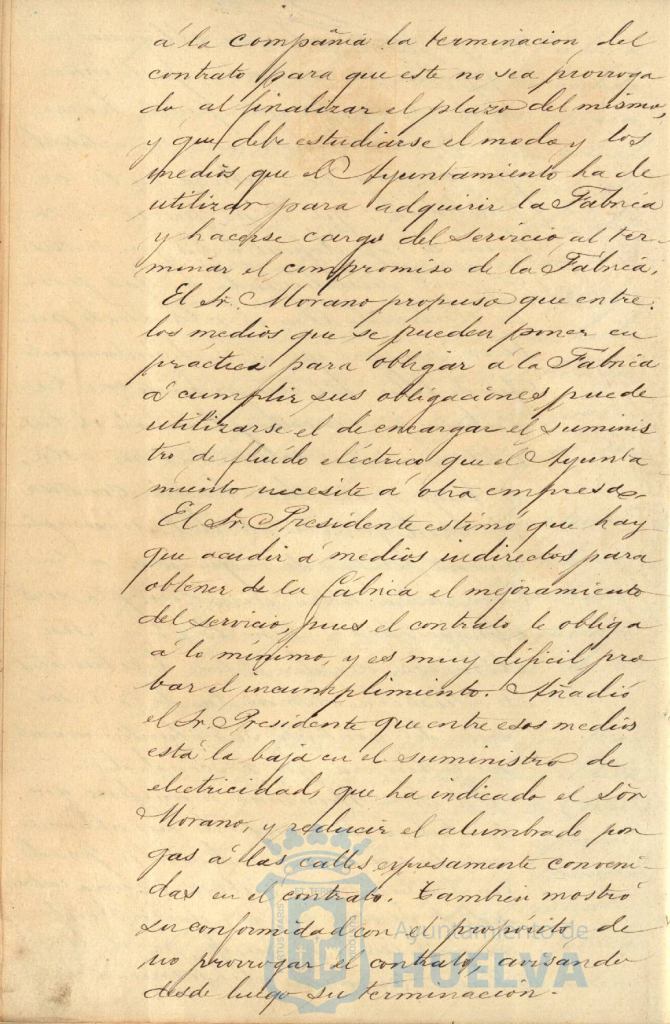 á la compañia la terminacion del
contrato para que este no sea prorroga
do al finalizar el plazo del mismo,
y que debe estudiarse el modo y los
medios que el Ayuntamiento ha de
utilizar para adquirir la Fabrica
y hacerse cargo del servicio al ter-
minar el compromiso de la Fabrica.
El Sr. Morano propuso que entre
los medios que se pueden poner en
practica para obligar a la Fabrica
á cumplir sus obligaciones puede
utilizarse el de encargar el suminis
tro de fluido eléctrico que el Ayunta-
miento necesite á otra empresa.
El Sr. Presidente estimó que hay
que acudir á medios indirectos para
obtener de la fábrica el mejoramiento
del servicio, pues el contrato le obliga
á lo mínimo, y es muy dificil pro
bar el incumplimiento. Añadió
el Sr. Presidente que entre esos medios
está la baja en el suministro de
electricidad, que ha indicado el Sór
Morano, y reducir el alumbrado por
gas á las calles expresamente conveni-
das en el contrato. Tambien mostró
su conformidad con el propósito de
no prorrogar el contrato, avisando
desde luego su terminación.
Ayuntamiento de
HUELVA